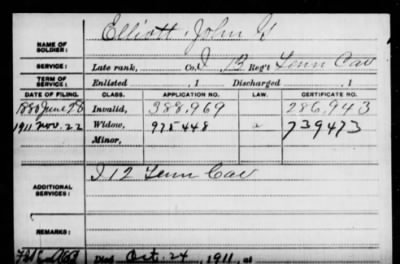 Elliott, John
NAME OF SOLDIER:
SERVICE: Late rank, Co. I, 13 Reg't Tenn Cav
TERM OF SERVICE: Enlisted , 1 Discharged , 1
DATE OF FILING. CLASS. APPLICATION NO. LAW. CERTIFICATE NO.
1880 June 28 Invalid, 388,969 286,943
1911 Nov. 22 Widow, 975448 739473
Minor,
ADDITIONAL SERVICES: I 12 Tenn Cav
REMARKS:
Died Oct. 24, 1911, at